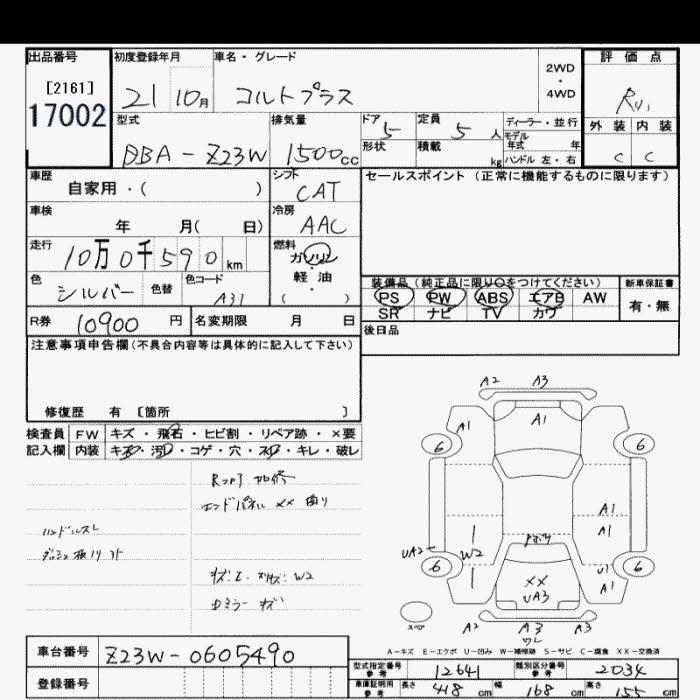 出品番号 初度登録年月 車名・グレード 評価点
[2161]
17002
21 10月 コルトプラス 2WD・4WD
型式 排気量 ドア 定員 ディーラー・並行 外装 内装
DBA-Z23W 1500cc 5 5人 モデル年式 年 C C
形状 積載 kg ハンドル 左・右
車歴 シフト セールスポイント (正常に機能するものに限ります)
自家用・( ) CAT
車検 冷房
年 月( 日) AAC
走行 燃料
10万0千590km ガソリン
色 色替 色コード 軽・油
シルバー A31 ( )
装備品 (純正品に限り○をつけてください) 新車保証書
PS PW ABS エアB AW 有・無
SR ナビ TV カワ
R券 10900円 名変期限 月 日 後日品
注意事項申告欄(不具合内容等は具体的に記入して下さい)
修復歴 有 [箇所 ]
検査員 FW キズ・飛石・ヒビ割・リペア跡・×要
記入欄 内装 キズ・汚れ・コゲ・穴・スレ・キレ・破レ
エンドパネル ×× 曲り
ハンドルスレ
W2
ドミラー キズ
A2 A3
A1 A1
6 6
A1
A1
UA2 W2
6 6
U1
A1
××
UA3
A2 A3 A3
ワレ
A-キズ E-エクボ U-凹み W-補修跡 S-サビ C-腐食 XX-交換済
車台番号 Z23W-0605490
登録番号
型式指定番号 参考 12641 類別区分番号 参考 2034
車庫証明用 参考 長さ 418cm 幅 168cm 高さ 155cm